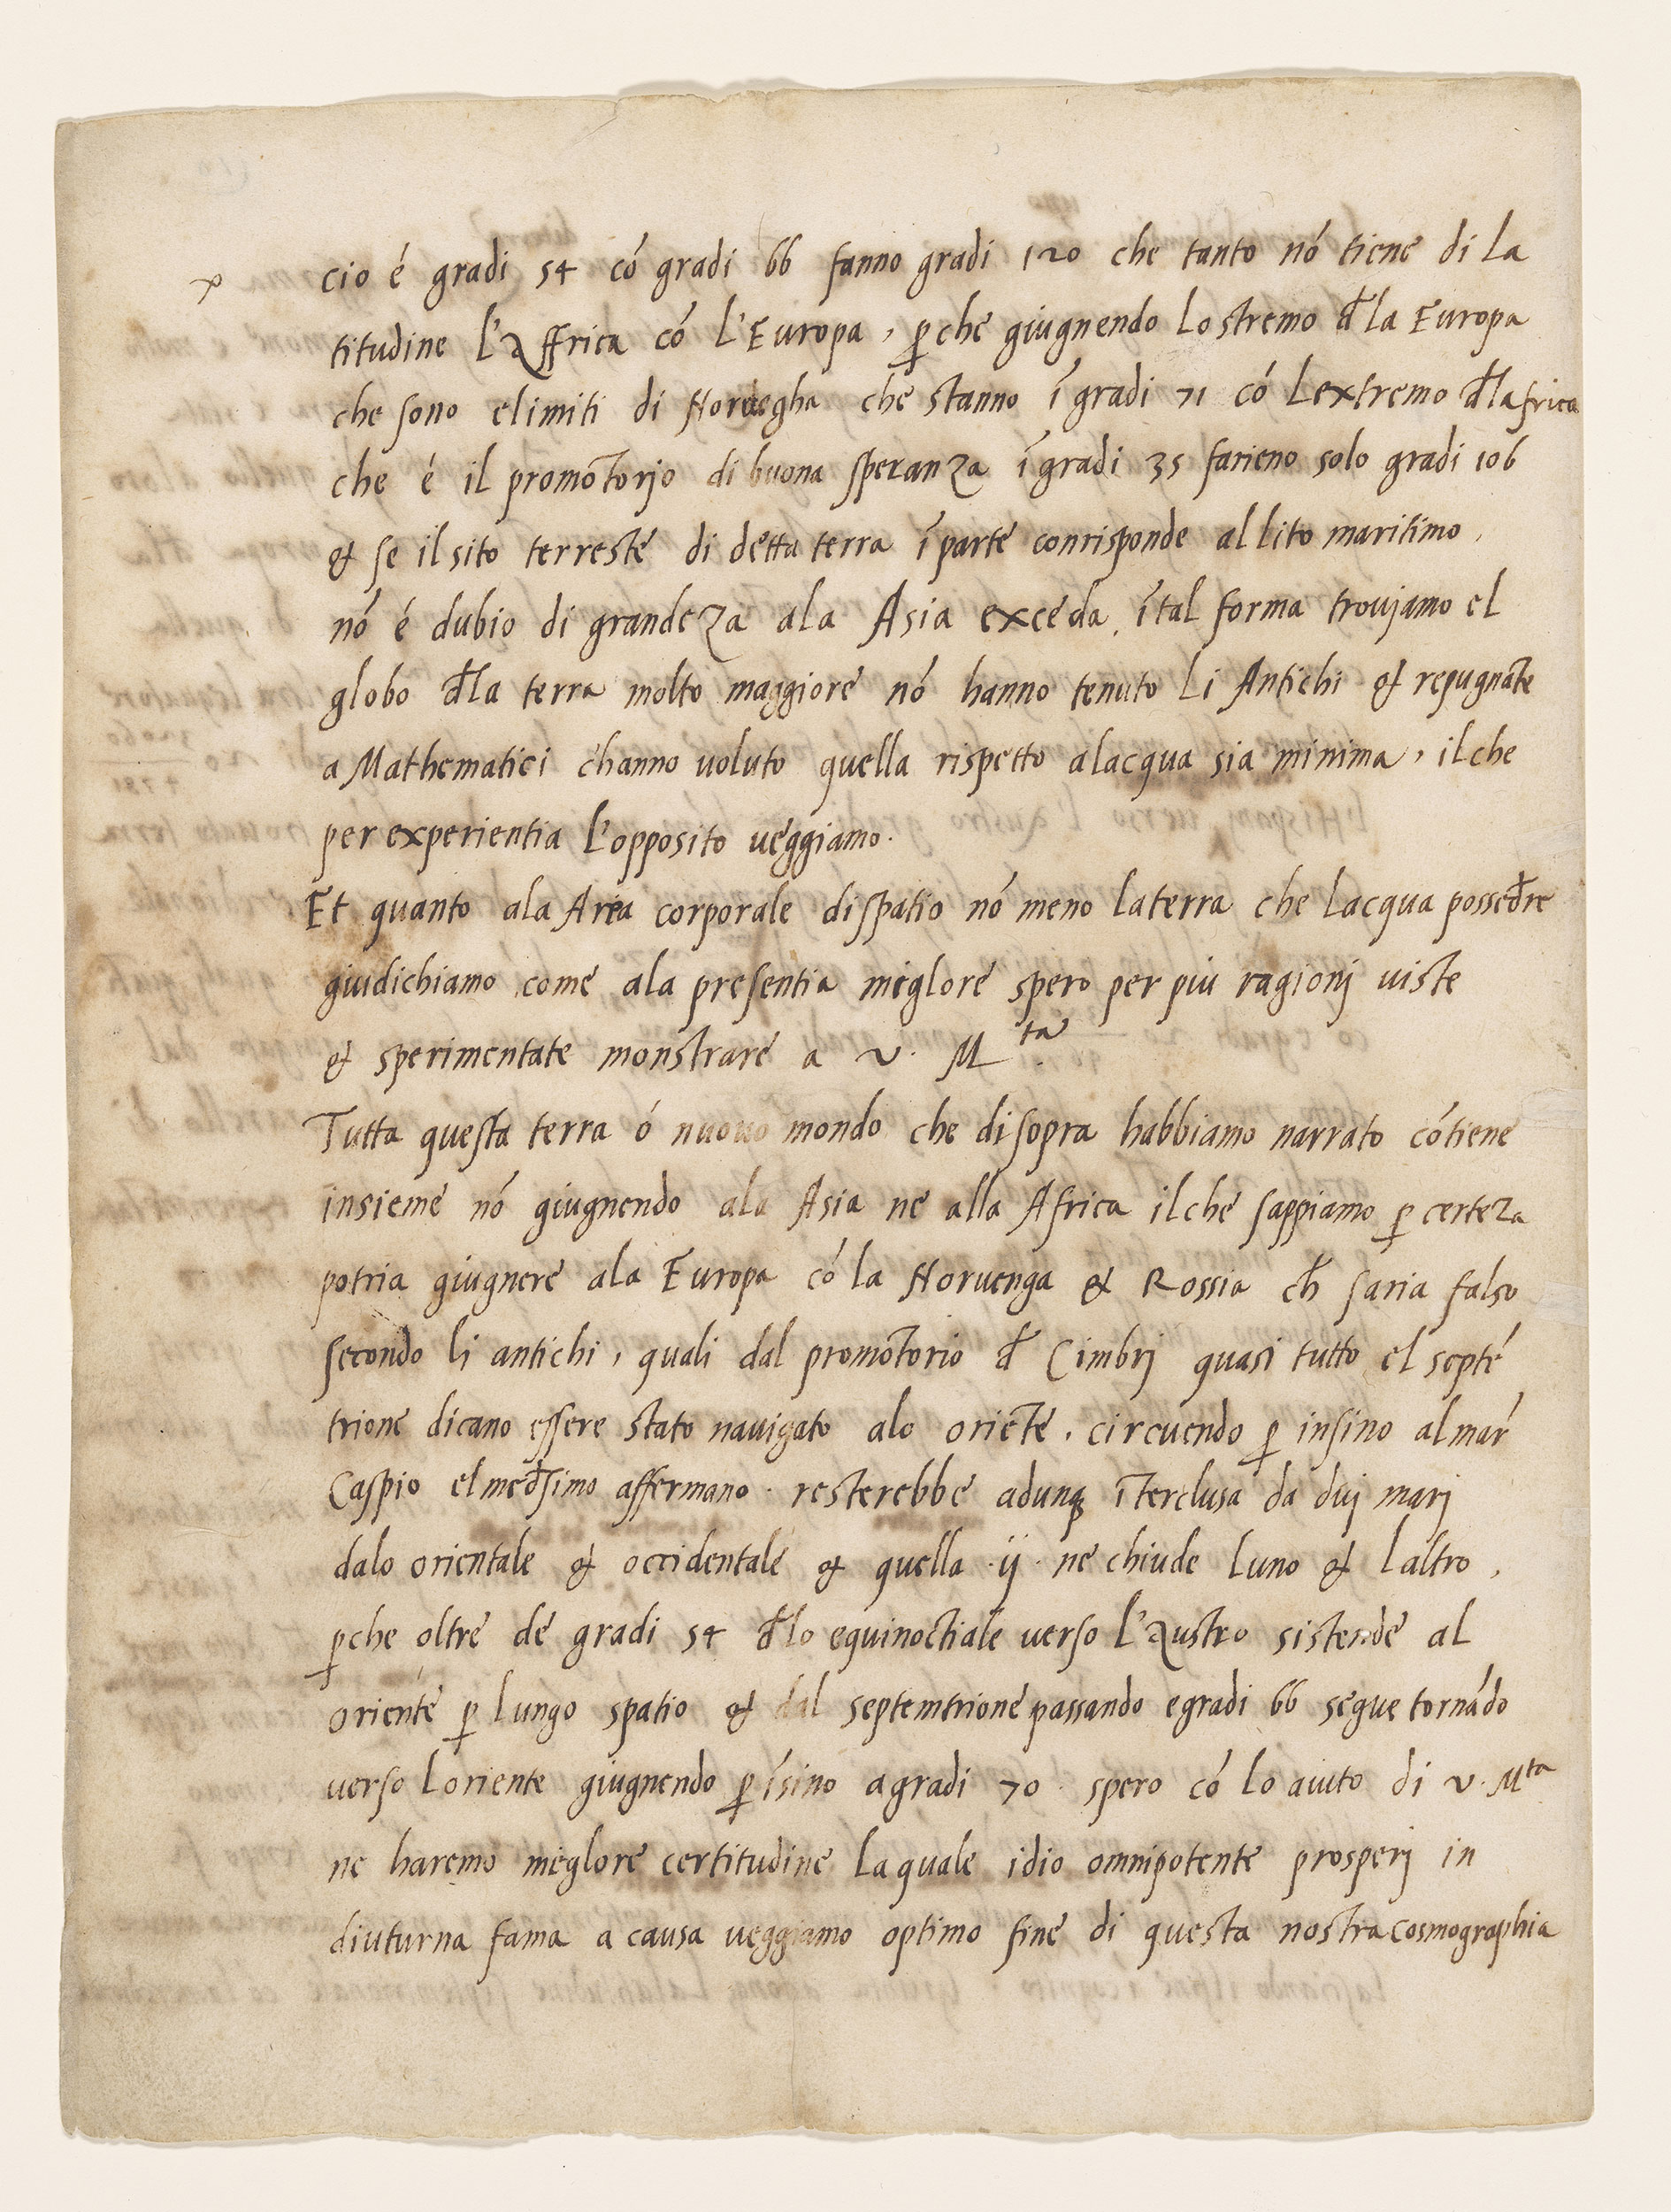 cio é gradi 54 có gradi 66 fanno gradi 120 che tanto nó tiene di la
titudine l'Affrica có l'Europa, p̱che giugnendo lostremo đla Europa
che sono elimiti di Noruegha che stanno ī gradi 71 có lextremo đlafrica
che é il promōtorjo di buona speranza ī gradi 35 farieno solo gradi 106
& se il sito terrestè di detta terra ī parte conrisponde al lito maritimo,
nó é dubio di grandeza ala Asia exceda. ītal forma troujamo el
globo đla terra molto maggiore nó hanno tenuto li Antichi & repugnāte
a Mathematici c'hanno uoluto quella rispetto alacqua sia minima, ilche
per experientia l'opposito ueggiamo.
Et quanto ala Area corporale di spatio nó meno laterra che lacqua posseđre
giudichiamo come ala presentia meglore spero per piu ragionj uiste
& sperimentate monstrare a v. M.ta
Tutta questa terra ó nuouo mondo che disopra habbiamo narrato cótiene
insieme nó giugnendo ala Asia ne alla Africa ilche sappiamo p̱ certeza
potria giugnere ala Europa có la Noruenga & Rossia cħ saria falso
secondo li antichi, quali dal promōtorio đ Cimbrj quasi tutto el septé
trione dicano essere stato nauigato alo oriēte. circuendo p̱ insino al mar
Caspio el međsimo affermano. resterebbe adunq̨ īterclusa da duj marj
dalo orientale & occidentale & quella .ij. ne chiude luno & laltro,
p̱che oltre de gradi 54 đlo equinoctiale uerso l'Austro sistende al
oriente p̱ lungo spatio & dal septemtrione passando egradi 66 segue tornádo
uerso loriente giugnendo p̱ īsino agradi 70. spero có lo aiuto di v. Mta
ne haremo meglore certitudine laquale idio omnipotente prosperj in
diuturna fama a causa ueggiamo optimo fine di questa nostra cosmographia